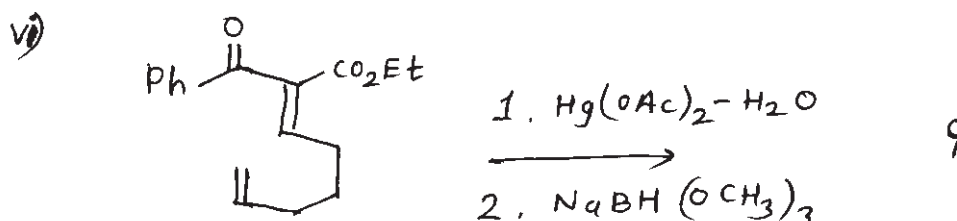 vi)
O
Ph
CO2Et
1. Hg(OAc)2-H2O
2. NaBH(OCH3)3